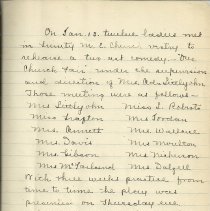 On Jan. 13. twelve ladies met
in Trinity M. E. Church, vestry to
rehearse a two act comedy. "Our
Church Fair" under the supervision
and direction of Mrs. Geo. Littlejohn
Those meeting were as follows -
Mrs Littlejohn Miss L. Roberts
Mrs Grafton Mrs Jordan
Mrs. Annett Mrs Wallace
Mrs. Davis Mrs Moulton
Mrs Gibson Mrs Nickerson
Mrs McFarland Mrs Dalzell
With three weeks practice from
time to time the play was
presented on Thursday eve